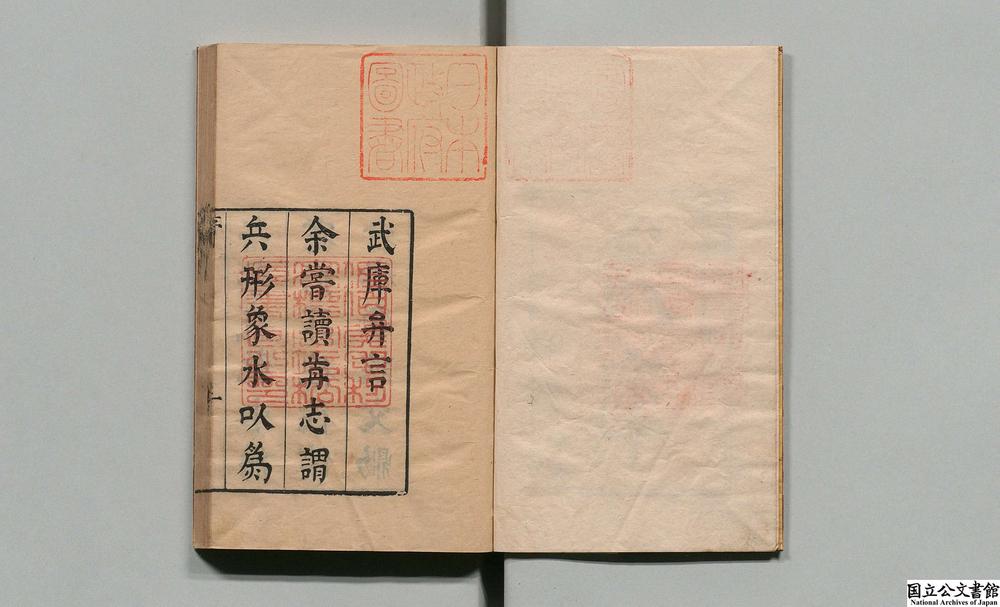 日本
政府
圖書
武庫弁言
余嘗讀歬志謂
兵形象水以爲
国立公文書館
National Archives of Japan